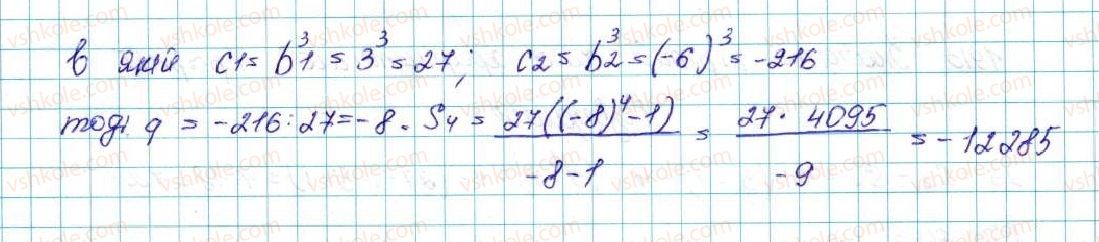 в якій c1 = b1³ = 3³ = 27; c2 = b2³ = (-6)³ = -216
тоді q = -216 : 27 = -8. S4 = 27((-8)⁴-1) / -8-1 = 27 · 4095 / -9 = -12285